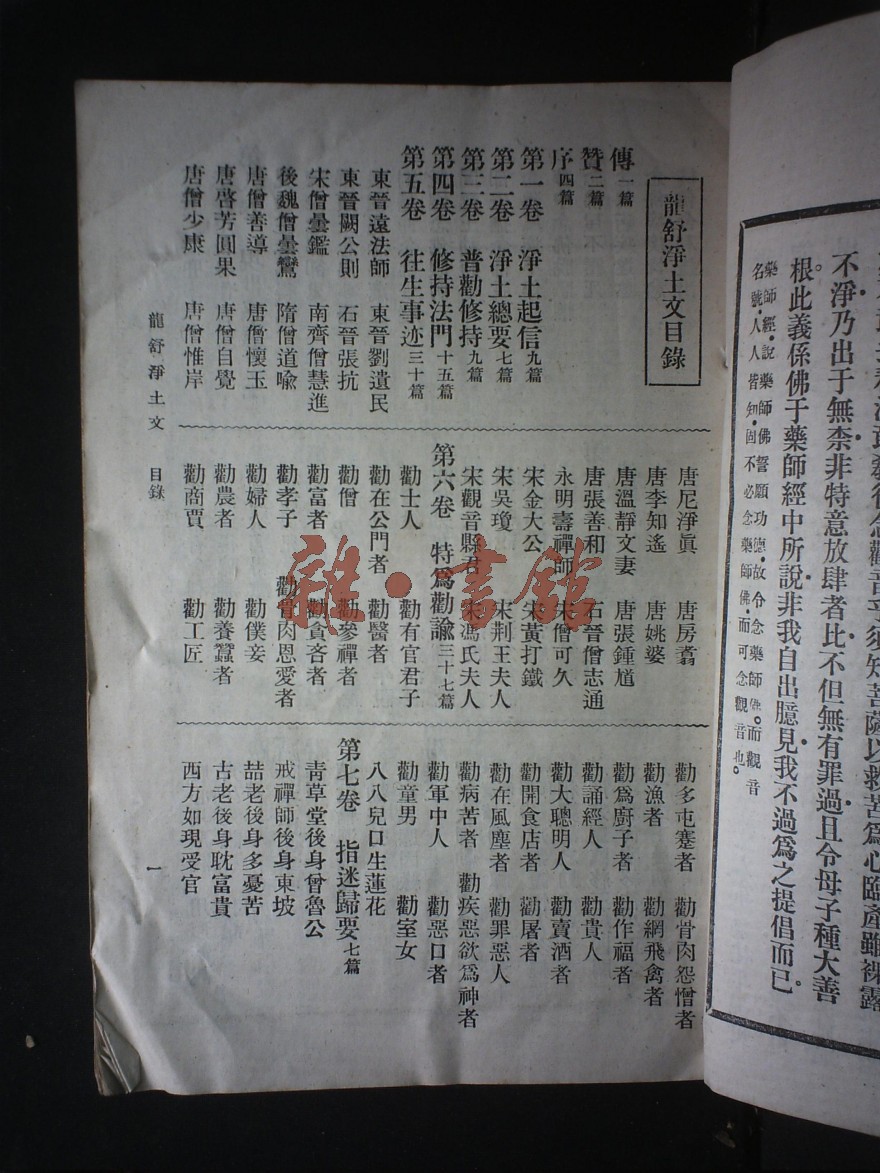 不淨乃出于無柰非特意放肆者比不但無有罪過且令母子種大善
根。此義係佛于藥師經中所說非我自出臆見我不過爲之提倡而已。
藥師經說藥師佛誓願功德故令念藥師佛。而觀音
名號人人皆知固不必念藥師佛而可念觀音也。
龍舒淨土文目錄
傳一篇
贊二篇
序四篇
第一卷 淨土起信九篇
第二卷 淨土總要七篇
第三卷 普勸修持九篇
第四卷 修持法門十五篇
第五卷 往生事迹三十篇
東晉遠法師 東晉劉遺民
東晉闕公則 石晉張抗
宋僧曇鑑 南齊僧慧進
後魏僧曇鸞 隋僧道喻
唐僧善導 唐僧懷玉
唐啓芳圓果 唐僧自覺
唐僧少康 唐僧惟岸
唐尼淨眞 唐房翥
唐李知遙 唐姚婆
唐溫靜文妻 唐張鍾馗
唐張善和 石晉僧志通
永明壽禪師 宋僧可久
宋金大公 宋黃打鐵
宋吳瓊 宋荆王夫人
宋觀音縣君 宋馮氏夫人
第六卷 特爲勸諭三十七篇
勸士人 勸有官君子
勸在公門者 勸醫者
勸僧 勸參禪者
勸富者 勸貪吝者
勸孝子 勸骨肉恩愛者
勸婦人 勸僕妾
勸農者 勸養蠶者
勸商賈 勸工匠
勸多屯蹇者 勸骨肉怨憎者
勸漁者 勸網飛禽者
勸爲廚子者 勸作福者
勸誦經人 勸貴人
勸大聰明人 勸賣酒者
勸開食店者 勸屠者
勸在風塵者 勸罪惡人
勸病苦者 勸疾惡欲爲神者
勸軍中人 勸惡口者
勸童男 勸室女
第七卷 指迷歸要七篇
八八兒口生蓮花
青草堂後身曾魯公
戒禪師後身東坡
喆老後身多憂苦
古老後身耽富貴
西方如現受官
龍舒淨土文 目錄
一
雜·書館